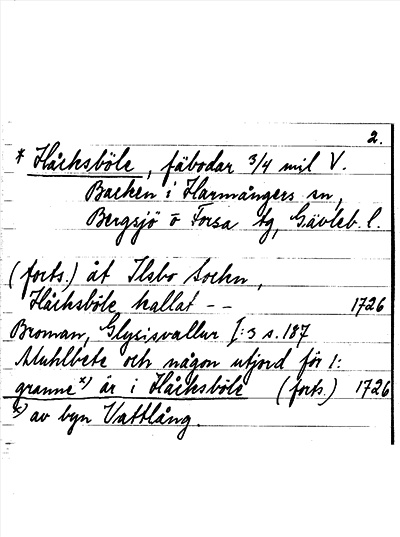 2.
* Håcksböle, fäbodar 3/4 mil V.
Backen i Harmångers sn,
Bergsjö o Forsa tg, Gävleb. l.
(forts.) åt Ilsbo Sochn,
Håcksböle kallat -- 1726
Broman, Glysisvallur I:3 s. 187
Muhlbete och någon utjord för 1:
granne x) är i Håcksböle (forts.) 1726
x) av byn Vattlång.